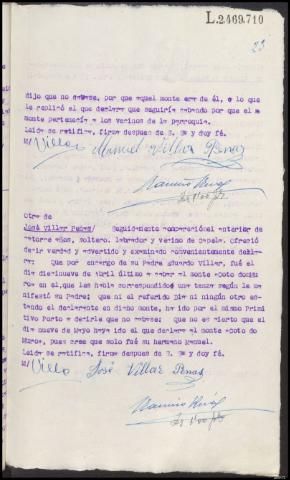 L.2469.710
23
dijo que no cavase, por que aquel monte era de él, a lo que
le replicó el que declara que seguiría cavando por que el
monte pertenecía a los vecinos de la parroquia.
Leída se ratifica, firma despues de S. Sª y doy fé.
M/ Villar Manuel Villar Penas
Ramiro
Otra de
José Villar Penas/ Seguidamente compareció el anterior de
catorce años, soltero, labrador y vecino de Capela. Ofreció
decir verdad y advertido y examinado convenientemente decla-
ra: Que por encargo de su Padre Eduardo Villar, fué el
dia diecinueve de Abril último a cavar al monte "Coto do
ro en el, que les habia correspondido una tenza según le ma-
nifestó su Padre; que ni el referido dia ni ningún otro es-
tando el declarante en dicho monte, ha ido por el mismo Primi-
tivo Porto a decirle que no cavase: que no es cierto que el
dia nueve de Mayo haya ido el que declara al monte "Coto do
Muro", pues cree que solo fué su hermano Manuel.
Leída se ratifica, firma despues de S. Sª y doy fé.
M/ Villar José Villar Penas
Ramiro